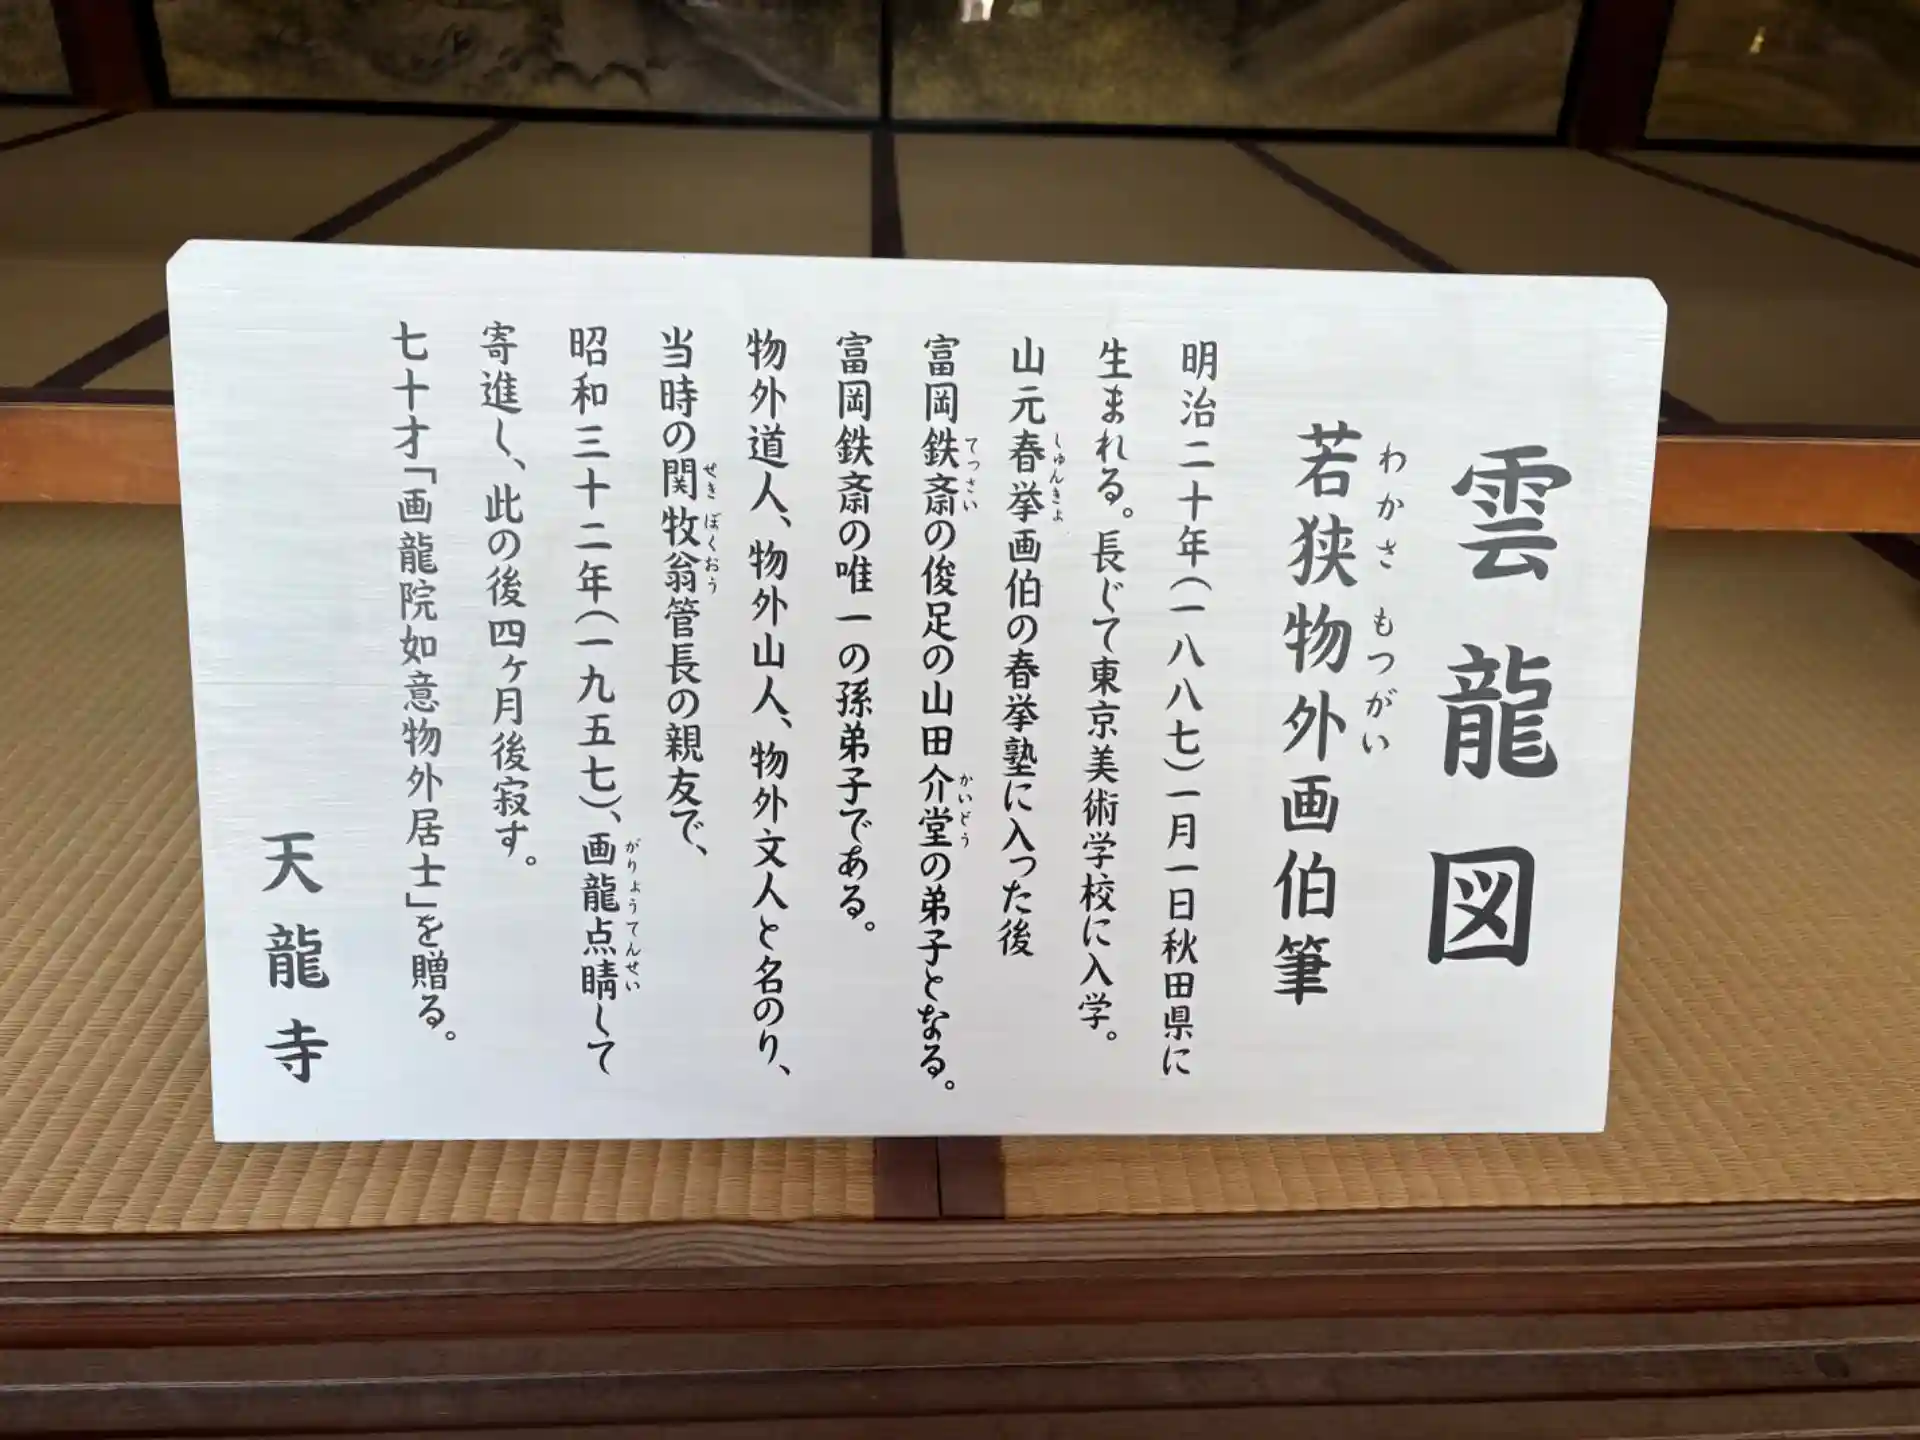 雲龍図
若狭物外画伯筆
わかさ もつがい
明治二十年(一八八七)一月一日秋田県に
生まれる。長じて東京美術学校に入学。
山元春挙画伯の春挙塾に入った後
しゅんきょ
富岡鉄斎の俊足の山田介堂の弟子となる。
てっさい かいどう
富岡鉄斎の唯一の孫弟子である。
物外道人、物外山人、物外文人と名のり、
当時の関牧翁管長の親友で、
せき ぼくおう
昭和三十二年(一九五七)、画龍点睛して
がりょうてんせい
寄進し、此の後四ヶ月後寂す。
七十才「画龍院如意物外居士」を贈る。
天龍寺